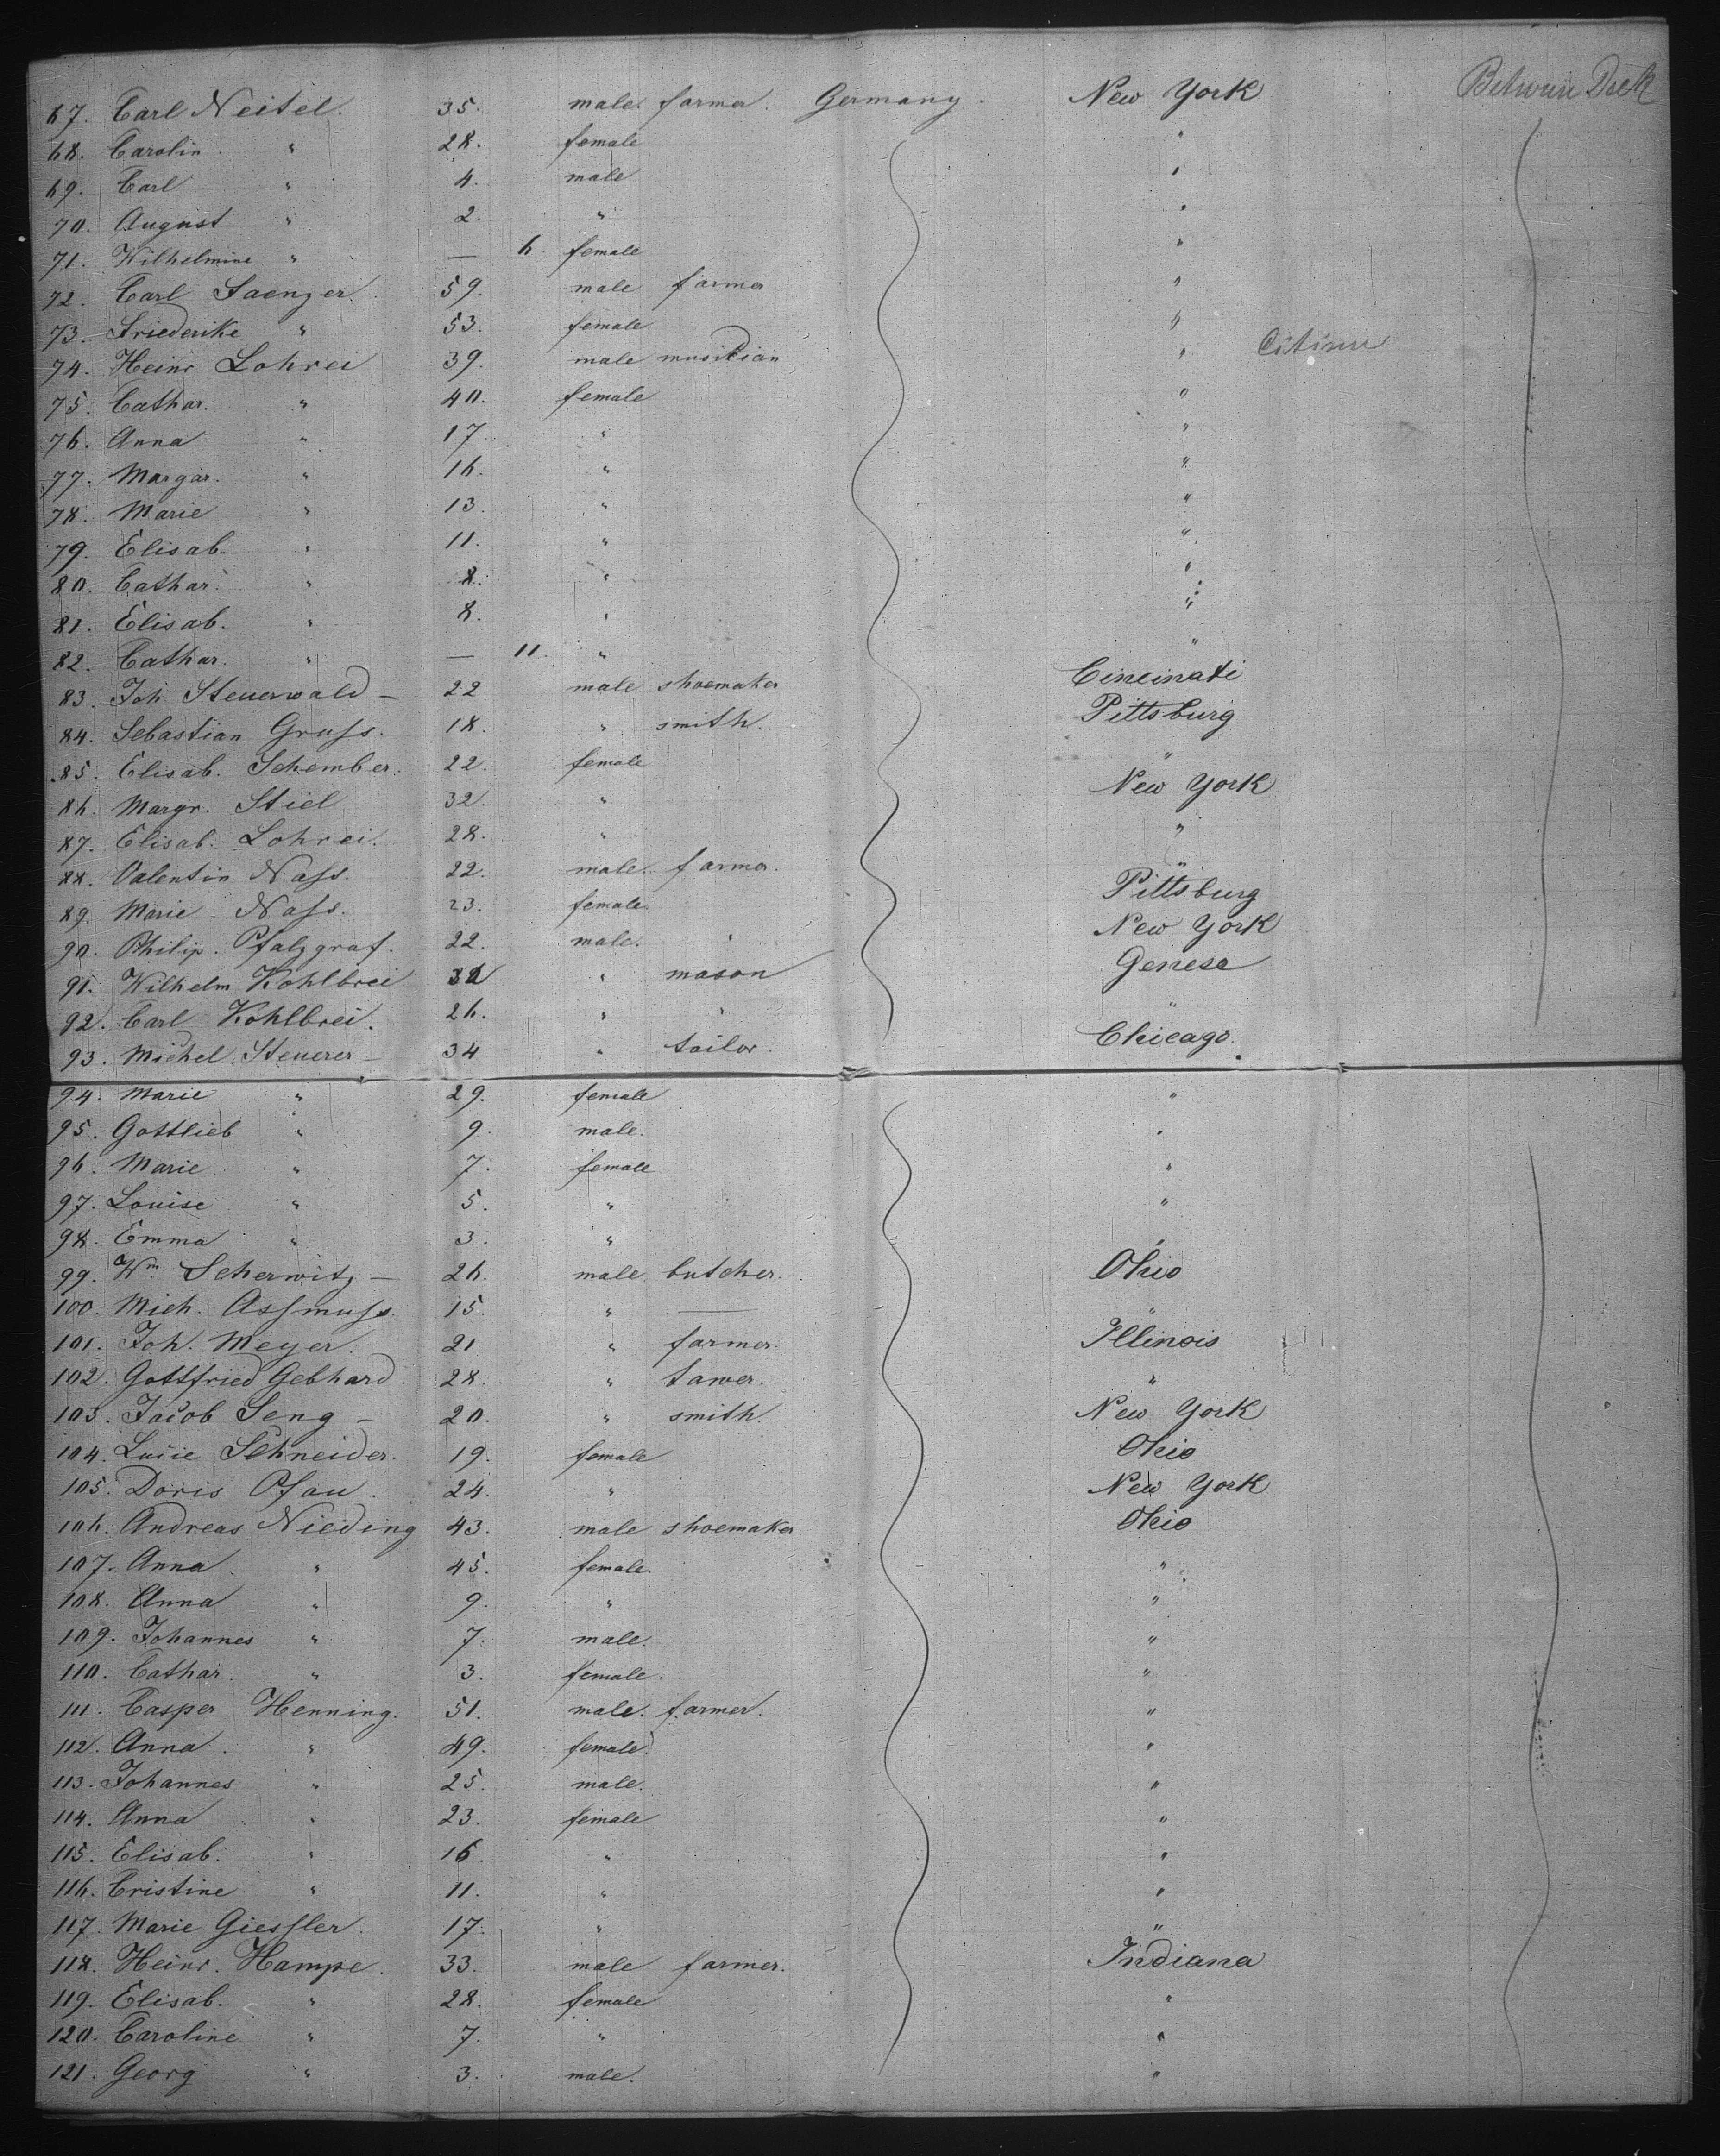 67. Carl Neitel. 35. male. farmer. Germany. New York Between Deck
68. Carolin " 28. female "
69. Carl " 4. male "
70. August " 2. " "
71. Wilhelmine " — 6. female "
72. Carl Saenger. 59. male farmer "
73. Friederike " 53. female "
74. Heinr Lohrei 39. male musician "
75. Cathar. " 40. female "
76. Anna " 17. " "
77. Margar. " 16. " "
78. Marie " 13. " "
79. Elisab. " 11. " "
80. Cathar. " 8. " "
81. Elisab. " 8. " "
82. Cathar. " — 11. " "
83. Joh Steuerwald — 22 male shoemaker Cincinati
84. Sebastian Gruss. 18. " smith. Pittsburg
85. Elisab. Schember. 22. female "
86. Margr. Stiel 32. " New York
87. Elisab. Lohrei. 28. " "
88. Valentin Nass. 22. male. farmer. "
89. Marie Nass. 23. female. Pittsburg
90. Philip. Pfalzgraf. 22. male. " New York
91. Wilhelm Kohlbrei " mason Genese
92. Carl Kohlbrei. 26. " " "
93. Michel Steuerer — 34 " tailor. Chicago.
94. Marie " 29. female "
95. Gottlieb " 9. male. "
96. Marie " 7. female "
97. Louise " 5. " "
98. Emma " 3. " "
99. Wm Scherwitz — 26. male butcher. Ohio
100. Mich. Assmuss. 15. " — "
101. Joh. Meyer. 21 " farmer. Illinois
102. Gottfried Gebhard. 28. " tawer. "
103. Jacob Seng — 20. " smith. New York
104. Lucie Schneider. 19. female Ohio
105. Doris Pfau. 24. " New York
106. Andreas Nieding 43. male shoemaker Ohio
107. Anna " 45. female. "
108. Anna " 9. " "
109. Johannes " 7. male. "
110. Cathar. " 3. female. "
111. Casper Henning. 51. male. farmer. "
112. Anna. " 49. female. "
113. Johannes " 25. male. "
114. Anna " 23. female "
115. Elisab. " 16. " "
116. Cristine " 11. " "
117. Marie Giessler. 17. " "
118. Heinr. Hampe. 33. male farmer. Indiana
119. Elisab. " 28. female "
120. Caroline " 7. " "
121. Georg " 3. male. "